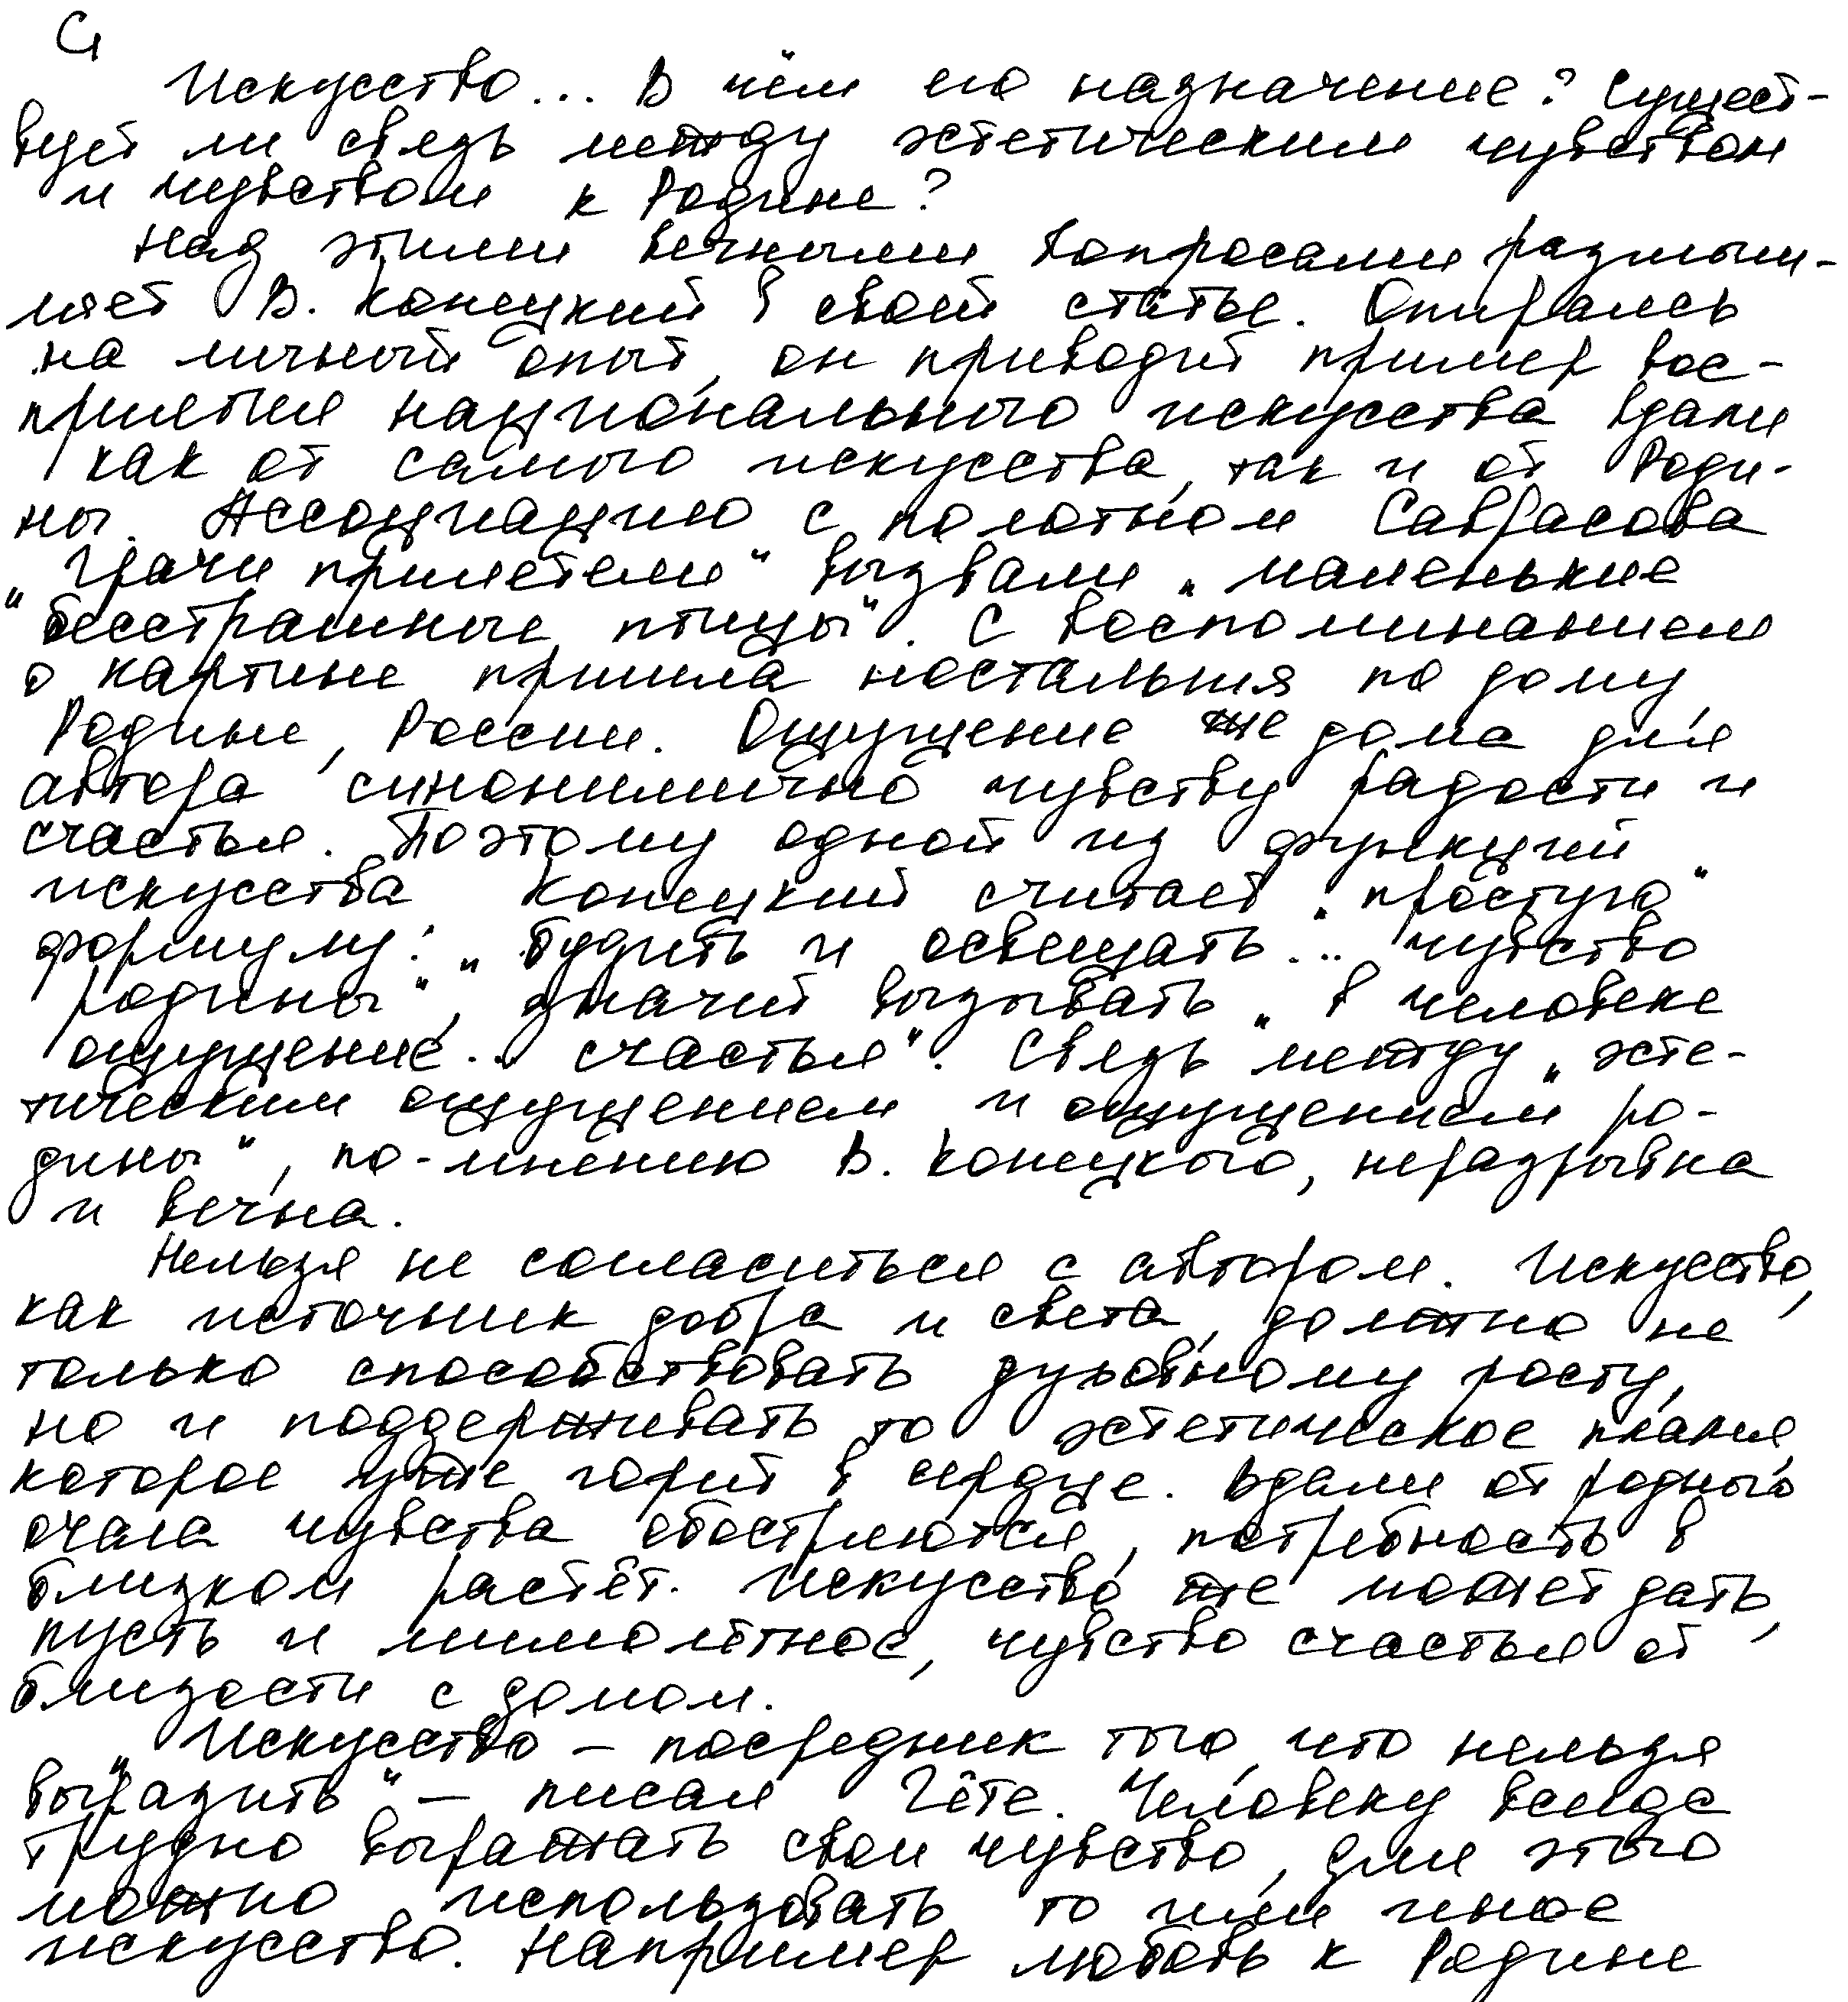 С1
Искусство... В чём его назначение? Сущест-
вует ли связь между эстетическим чувством
и чувством к Родине?
Над этими вечными вопросами размыш-
ляет В. Конецкий в своей статье. Опираясь
на личный опыт, он приводит пример вос-
приятия национального искусства вдали
как от самого искусства, так и от Роди-
ны. Ассоциацию с полотном Саврасова
„Грачи прилетели" вызвали „маленькие
"бесстрашные птицы". С воспоминанием
о картине пришла ностальгия по дому,
Родине, России. Ощущение же дома для
автора синонимично чувству радости и
счастья. Поэтому одной из функций
искусства Конецкий считает „простую"
формулу: „будить и освещать... чувство
родины", значит вызывать „в человеке
ощущение... счастья". Связь между „эсте-
тическим ощущением и ощущением ро-
дины", по-мнению В. Конецкого, неразрывна
и вечна.
Нельзя не согласиться с автором. Искусство,
как источник добра и света, должно не
только способствовать духовному росту,
но и поддерживать то эстетическое пламя,
которое уже горит в сердце. Вдали от родного
очага чувства обостряются, потребность в
близком растёт. Искусство же может дать,
пусть и мимолётное, чувство счастья от
близости с домом.
„Искусство – посредник того, что нельзя
выразить" – писал Гёте. Человеку всегда
трудно выражать свои чувство, для этого
можно использовать то или иное
искусство. Например любовь к Родине